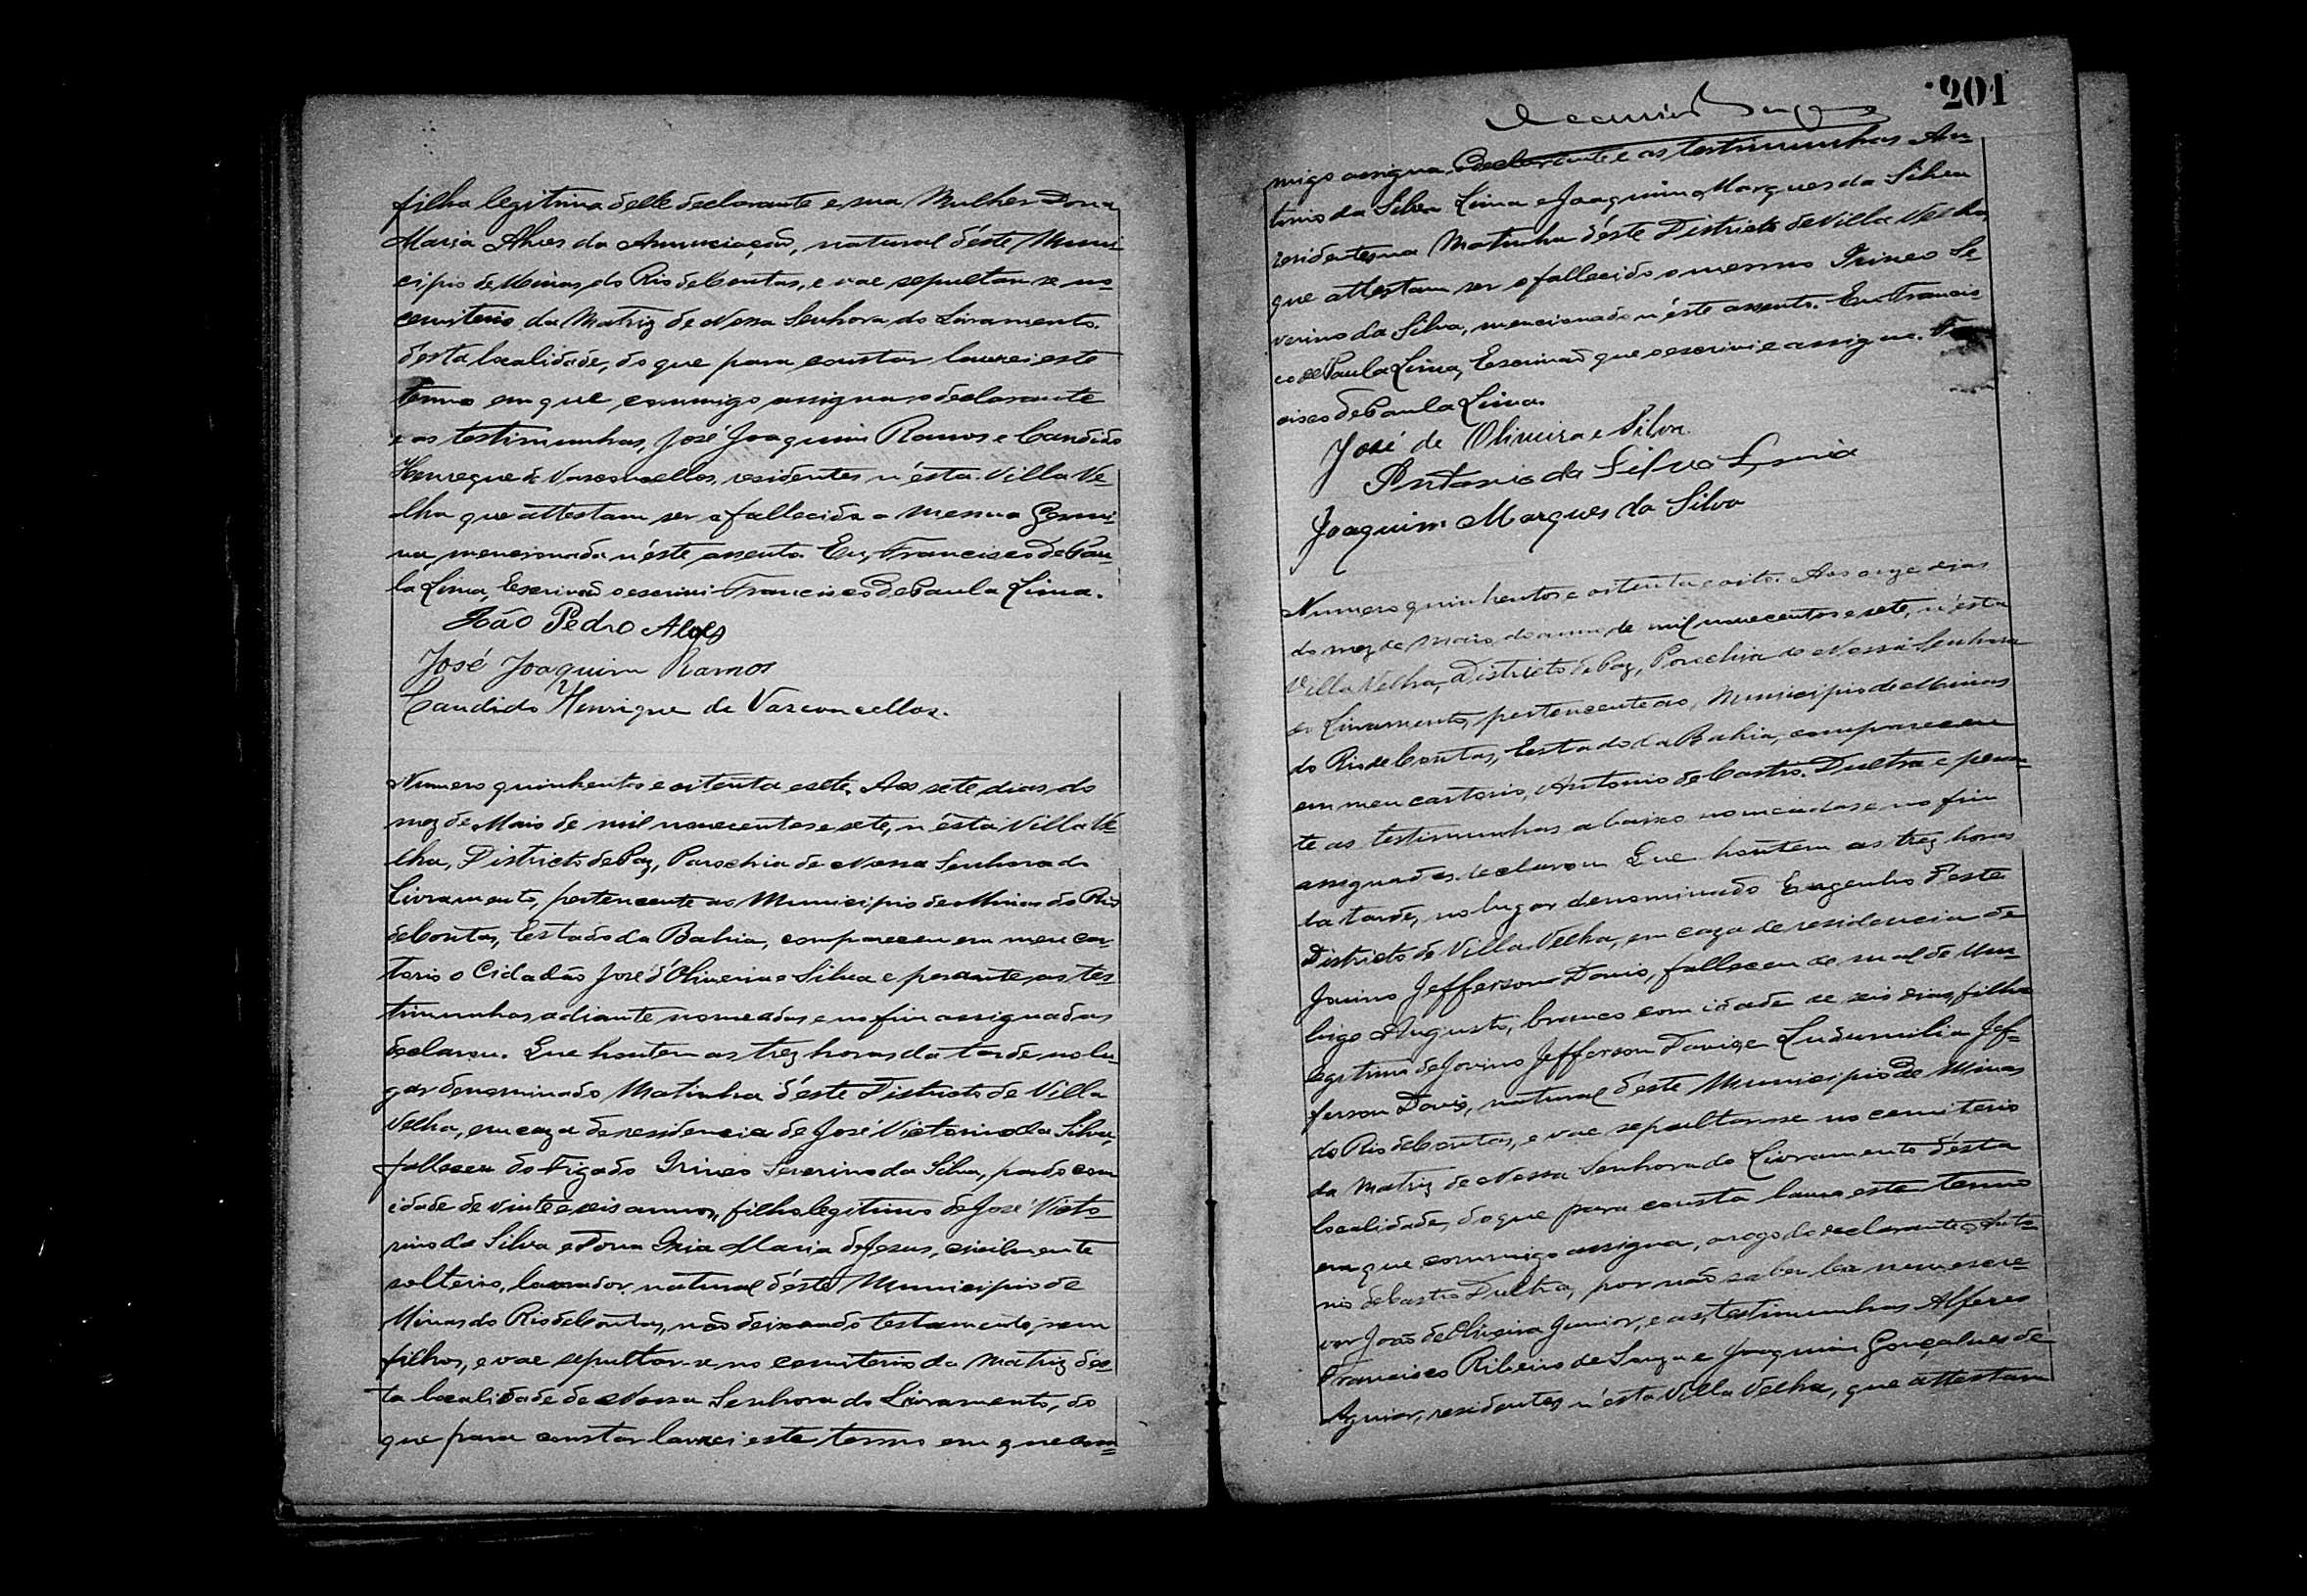 filha legitima delle declarante e sua Mulher Dona
Maria Alves da Annunciação, natural d'éste Muni
cipio de Minas do Rio de Contas, e vae sepultar-se no
cemiterio da Matriz de Nossa Senhora do Livramento
désta localidade, do que para constar lavrei este
termo em que commigo assigna o declarante
e as testimunhas, José Joaquim Ramos e Candido
Henreque de Vasconcellos, residentes n'ésta Villa Ve-
lha que attestam ser a fallecida a mesma Germi-
na, mencionada n'éste assento. Eu, Francisco de Pau-
la Lima, Escrivaõ o escrivi Francisco de Paula Lima.
João Pedro Alves
José Joaquim Ramos
Candido Henrique de Vasconcellos.
Numero quinhentos e oitenta e sete. Aos sete dias do
mez de Maio de mil novecentos e sete, n'ésta Villa Ve-
lha, Districto de Paz, Parochia de Nossa Senhora do
Livramento, pertencente ao Municipio de Minas do Rio
de Contas, Estado da Bahia, compareceu em meu car-
torio o Cidadão José d'Oliveira e Silva e perante as tes-
timunhas adiante nomeadas e no fim assignadas
declarou. Que hontem as trez horas da tarde no lu-
gar denominado Matinha d'éste Districto de Villa
Velha, em caza de residencia de José Victorino da Silva,
falleceu do Figado Irineo Severino da Silva, pardo com
idade de vinte e seis annos, filho legitimo de José Victo-
rino da Silva e Dona Maria de Jesus, civilmente
solteiro, lavrador, natural d'éste Municipio de
Minas do Rio de Contas, não deixando testamento, nem
filhos, e vae sepultar-se no cemiterio da Matriz des-
ta localidade de Nossa Senhora do Livramento, do
que para constar lavrei este termo em que com-
201
migo assigna o declarante e as testimunhas An-
tonio da Silva Lima e Joaquim Marques da Silva
residentes na Matinha d'éste Districto de Villa Velha,
que attestam ser o fallecido o mesmo Irineo Se-
verino da Silva, mencionado n'éste assento. Eu Francis-
co de Paula Lima, Escrivaõ que o escrivi e assigno. Fran
cisco de Paula Lima.
José de Oliveira e Silva
Antonio da Silva Lima
Joaquim Marques da Silva
Numero quinhentos e oitenta e oito. Aos onze dias
do mez de Maio do anno de mil novecentos e sete, n'ésta
Villa Velha, Districto de Paz, Parochia de Nossa Senhora
do Livramento, pertencente ao Municipio de Minas
do Rio de Contas, Estado da Bahia, compareceu
em meu cartorio, Antonio de Castro Dultra e peran-
te as testimunhas abaixo nomeiadas e no fim
assignadas declarou Que hontem as trez horas
da tarde, no lugar denominado Engenho d'éste
Districto de Villa Velha, em caza de residencia de
Jovino Jefferson Davis, falleceu de mal de Um-
bigo Augusto, branco com idade de seis dias, filho
legitimo de Jovino Jefferson Davis e Ludumilia Jef-
ferson Davis, natural d'este Municipio de Minas
do Rio de Contas, e vae sepultar-se no cemiterio
da Matriz de Nossa Senhora do Livramento désta
localidade, do que para consta lavro este termo
em que commigo assigna, a rogo do declarante Anto-
nio de Castro Dultra, por não saber ler nem escre-
ver João de Oliveira Junior, e as testimunhas Alferes
Francisco Ribeiro de Souza e Joaquim Gonçalves de
Aguiar, residentes n'ésta Villa Velha, que attestam